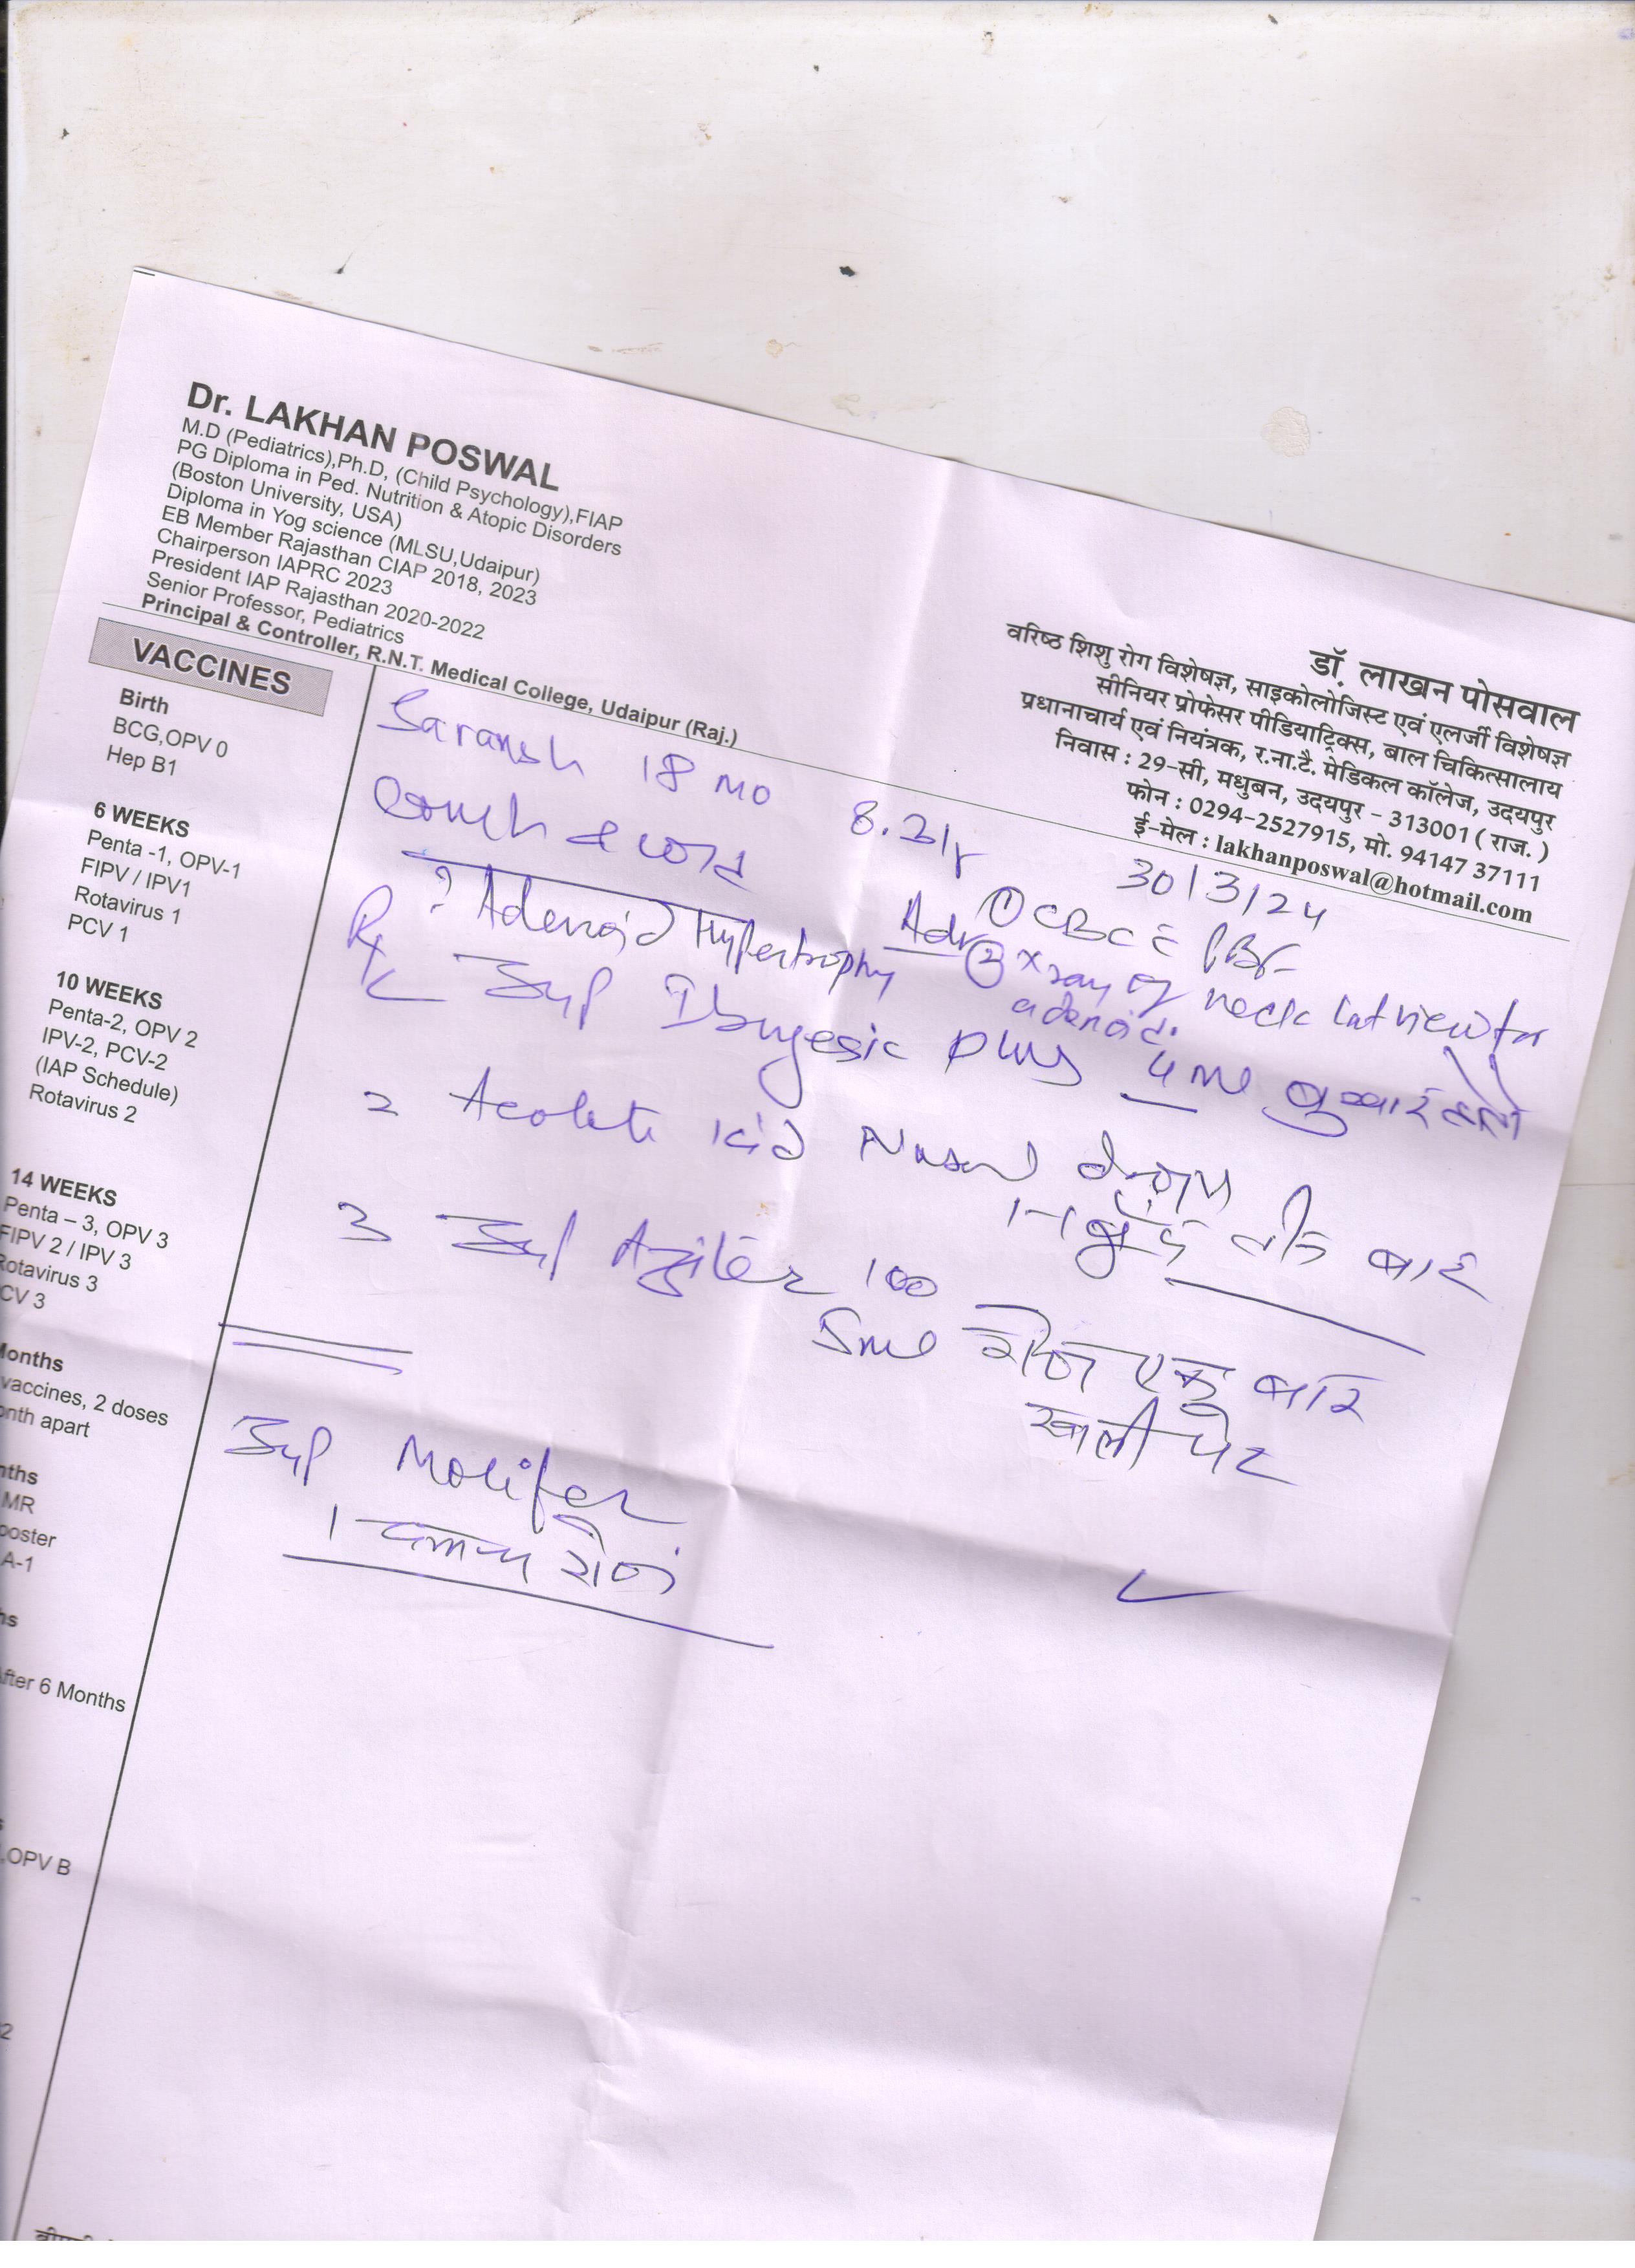 Dr. LAKHAN POSWAL
M.D (Pediatrics),Ph.D, (Child Psychology),FIAP
PG Diploma in Ped. Nutrition & Atopic Disorders
(Boston University, USA)
Diploma in Yog science (MLSU,Udaipur)
EB Member Rajasthan CIAP 2018, 2023
Chairperson IAPRC 2023
President IAP Rajasthan 2020-2022
Senior Professor, Pediatrics
Principal & Controller, R.N.T. Medical College, Udaipur (Raj.)
डॉ. लाखन पोसवाल
वरिष्ठ शिशु रोग विशेषज्ञ, साइकोलोजिस्ट एवं एलर्जी विशेषज्ञ
सीनियर प्रोफेसर पीडियाट्रिक्स, बाल चिकित्सालय
प्रधानाचार्य एवं नियंत्रक, र.ना.टै. मेडिकल कॉलेज, उदयपुर
निवास : 29-सी, मधुबन, उदयपुर - 313001 ( राज. )
फोन : 0294-2527915, मो. 94147 37111
ई-मेल : lakhanposwal@hotmail.com
VACCINES
Birth
BCG,OPV 0
Hep B1
6 WEEKS
Penta -1, OPV-1
FIPV / IPV1
Rotavirus 1
PCV 1
10 WEEKS
Penta-2, OPV 2
IPV-2, PCV-2
(IAP Schedule)
Rotavirus 2
14 WEEKS
Penta – 3, OPV 3
FIPV 2 / IPV 3
otavirus 3
CV 3
Months
vaccines, 2 doses
onth apart
nths
MR
ooster
A-1
hs
After 6 Months
,OPV B
Saransh 18 MO
30/3/24
Cough & cold
? Adenoid Hypertrophy
Adv ① CBC c PBF
② Xray of neck lat view for
adenoid.
Rx
Syp Ibugesic plus 4 ml बुखार
2 Kid Nasal drops
1-1 बूँद तीन बार
3 Syp Aziter 100
5ml रोज एक बार
खाली पेट
Syp
1 चम्मच रोज